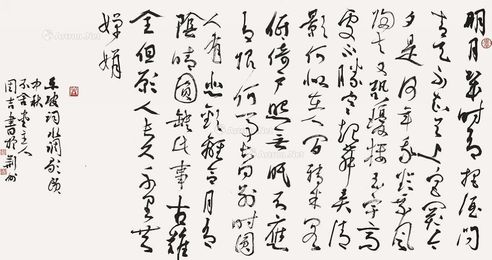 明月幾時有把酒問
青天不知天上宮闕今
夕是何年我欲乘風
歸去又恐瓊樓玉宇高
處不勝寒起舞弄清
影何似在人間轉朱閣
低綺戶照無眠不應
有恨何事長向別時圓
人有悲歡離合月有
陰晴圓缺此事古難
全但願人長久千里共
嬋娟
東坡詞水調歌頭
中秋
主人
書於荊州